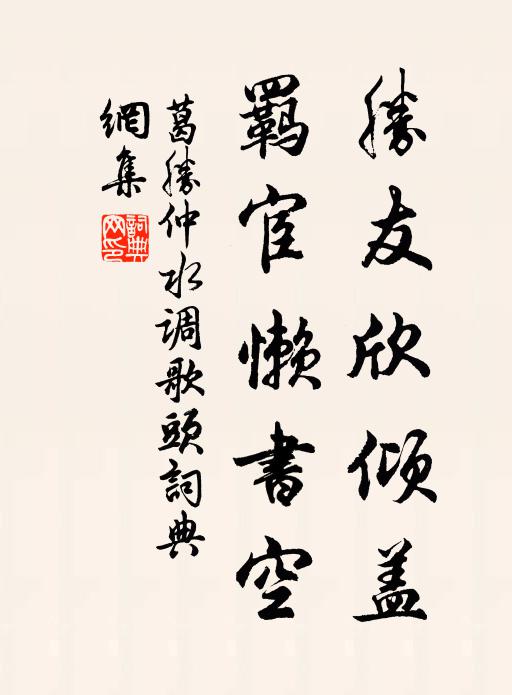 勝友欣傾盖
羈宦懶書空
葛勝仲水调歌頭詞典
網集
詞典网印